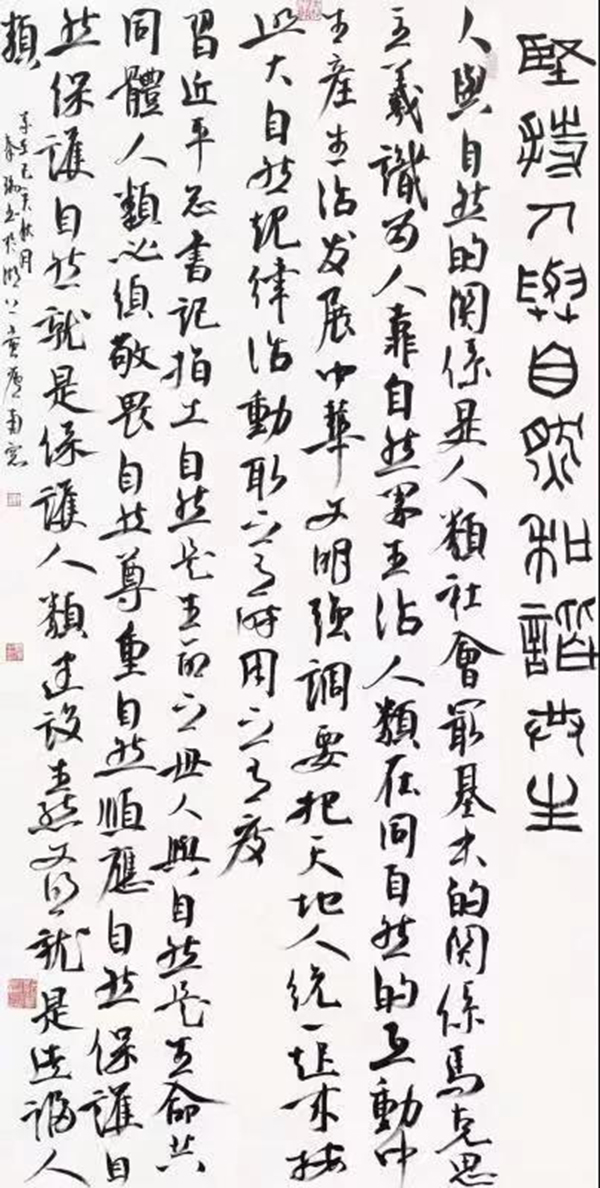 堅持人與自然和諧共生
人與自然的関係是人類社會最基本的関係馬克思
主義識为人靠自然界生活人類在同自然的互動中
生產生活发展中華文明強調要把天地人统一起來按
照大自然规律活動取之有時用之有度
習近平总書記指出自然是生命之母人與自然是生命共
同體人類必須敬畏自然尊重自然順應自然保護自
然保護自然就是保護人類建設生態文明就是造福人
類
己亥秋月
書於湖上